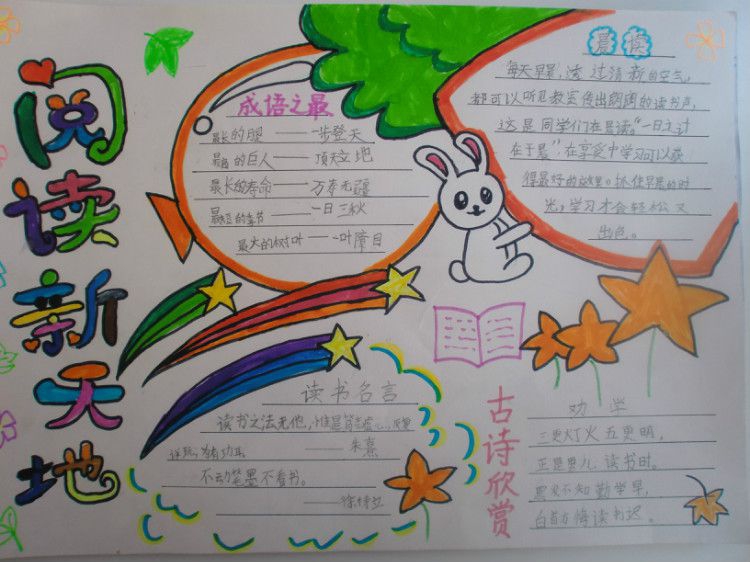 阅读新天地
成语之最
最长的腿——一步登天
最高的巨人——顶天立地
最长的寿命——万寿无疆
最短的季节——一日三秋
最大的树叶——一叶障目
爱读
每天早晨，透过清新的空气，
都可以听见教室传出朗朗的读书声，
这是同学们在晨读。“一日之计
在于晨”，在享受中学习可以获
得最好的效果。抓住早晨的时
光，学习才会轻松又
出色。
读书名言
读书之法无他，惟是笃志虚心，反复
详玩，为有功耳
——朱熹
不动笔墨不看书。
——徐特立
古诗欣赏
劝学
三更灯火五更明，
正是男儿读书时。
黑发不知勤学早，
白首方悔读书迟。